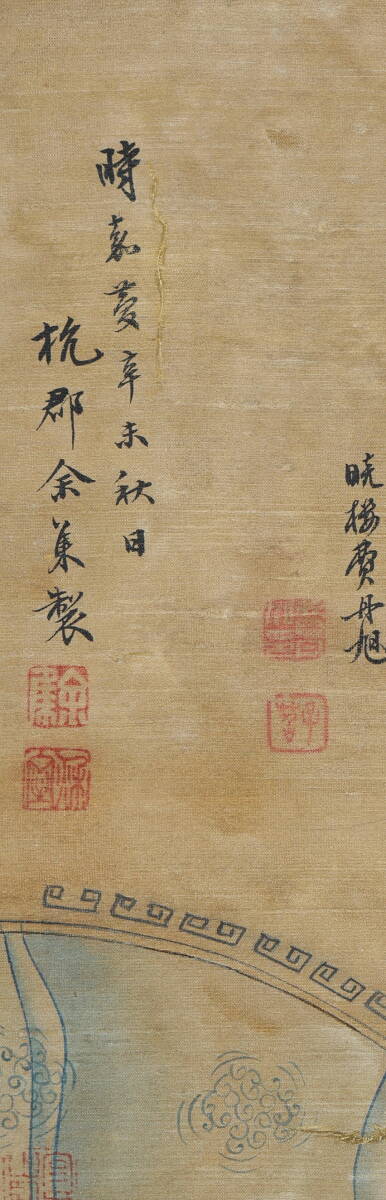 曉樓費丹旭
時嘉慶辛未秋日
杭郡余集製
余集